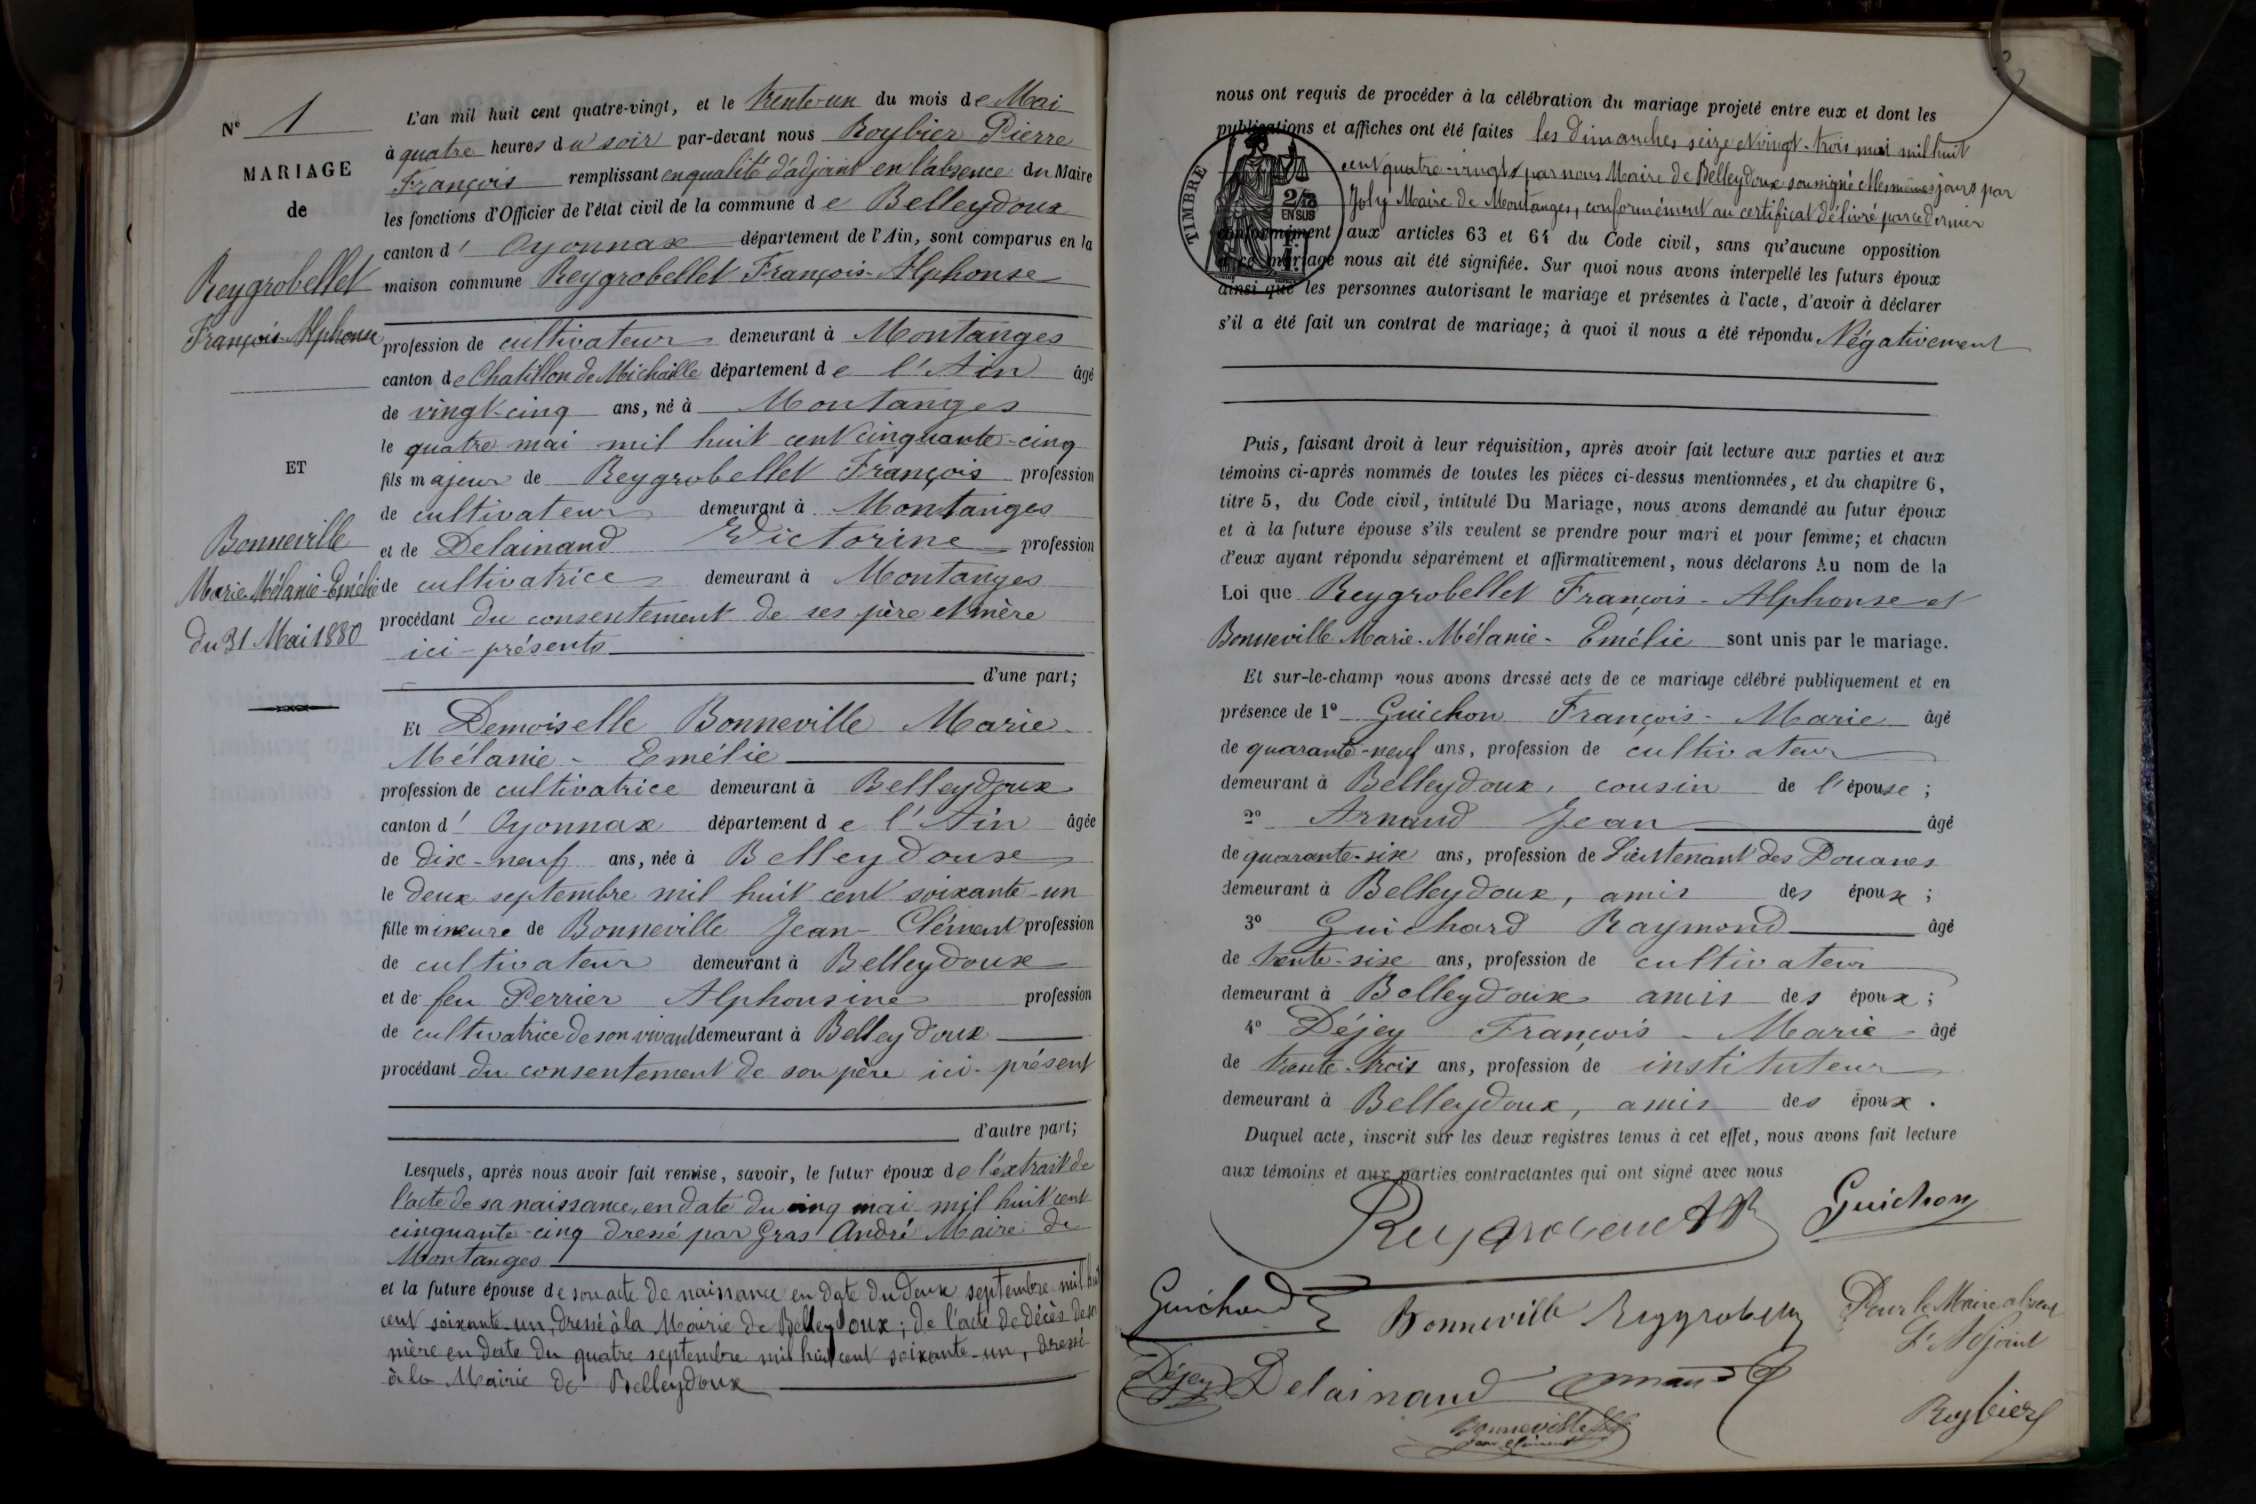 N° 1
MARIAGE
de
Reygrobellet
François-Alphonse
ET
Bonneville
Marie-Mélanie-Emélie
du 31 Mai 1880
L'an mil huit cent quatre-vingt, et le trente-un du mois de Mai
à quatre heures du soir par-devant nous Roybier Pierre
François remplissant en qualité d'adjoint en l'absence du Maire
les fonctions d'Officier de l'état civil de la commune de Belleydoux
canton d' Oyonnax département de l'Ain, sont comparus en la
maison commune Reygrobellet François-Alphonse
profession de cultivateur demeurant à Montanges
canton de Chatillon de Michaille département de l'Ain âgé
de vingt-cinq ans, né à Montanges
le quatre mai mil huit cent cinquante-cinq
fils majeur de Reygrobellet François profession
de cultivateur demeurant à Montanges
et de Delainaud Victorine profession
de cultivatrice demeurant à Montanges
procédant du consentement de ses père et mère
ici-présents
d'une part;
Et Demoiselle Bonneville Marie-
Mélanie-Emélie
profession de cultivatrice demeurant à Belleydoux
canton d' Oyonnax département de l'Ain âgée
de dix-neuf ans, née à Belleydoux
le deux septembre mil huit cent soixante-un
fille mineure de Bonneville Jean-Clément profession
de cultivateur demeurant à Belleydoux
et de feu Perrier Alphonsine profession
de cultivatrice de son vivant demeurant à Belleydoux
procédant du consentement de son père ici-présent
d'autre part;
Lesquels, après nous avoir fait remise, savoir, le futur époux de l'extrait de
l'acte de sa naissance, en date du cinq mai mil huit cent
cinquante-cinq dressé par Gras André Maire de
Montanges
et la future épouse de son acte de naissance en date du deux septembre mil huit
cent soixante-un, dressé à la Mairie de Belleydoux; de l'acte de décès de sa
mère en date du quatre septembre mil huit cent soixante-un, dressé
à la Mairie de Belleydoux
nous ont requis de procéder à la célébration du mariage projeté entre eux et dont les
publications et affiches ont été faites les dimanches seize et vingt-trois mai mil huit
cent quatre-vingts par nous Maire de Belleydoux soussigné et les mêmes jours par
Joly Maire de Montanges, conformément au certificat délivré par ce dernier
TIMBRE
2/10
EN SUS
conformément aux articles 63 et 64 du Code civil, sans qu'aucune opposition
à ce mariage nous ait été signifiée. Sur quoi nous avons interpellé les futurs époux
ainsi que les personnes autorisant le mariage et présentes à l'acte, d'avoir à déclarer
s'il a été fait un contrat de mariage; à quoi il nous a été répondu Négativement
Puis, faisant droit à leur réquisition, après avoir fait lecture aux parties et aux
témoins ci-après nommés de toutes les pièces ci-dessus mentionnées, et du chapitre 6,
titre 5, du Code civil, intitulé Du Mariage, nous avons demandé au futur époux
et à la future épouse s'ils veulent se prendre pour mari et pour femme; et chacun
d'eux ayant répondu séparément et affirmativement, nous déclarons Au nom de la
Loi que Reygrobellet François-Alphonse et
Bonneville Marie-Mélanie-Emélie sont unis par le mariage.
Et sur-le-champ nous avons dressé acte de ce mariage célébré publiquement et en
présence de 1° Guichon François-Marie âgé
de quarante-neuf ans, profession de cultivateur
demeurant à Belleydoux, cousin de l'épouse;
2° Arnaud Jean âgé
de quarante-six ans, profession de Lieutenant des Douanes
demeurant à Belleydoux, amis des époux;
3° Guichard Raymond âgé
de trente-six ans, profession de cultivateur
demeurant à Belleydoux amis des époux;
4° Déjey François-Marie âgé
de trente-trois ans, profession de instituteur
demeurant à Belleydoux, amis des époux.
Duquel acte, inscrit sur les deux registres tenus à cet effet, nous avons fait lecture
aux témoins et aux parties contractantes qui ont signé avec nous
Guichon
Guichard Bonneville Pour le Maire absent
L'Adjoint
Déjey Delainaud Arnaud
Roybier
Bonneville
Jean Clément